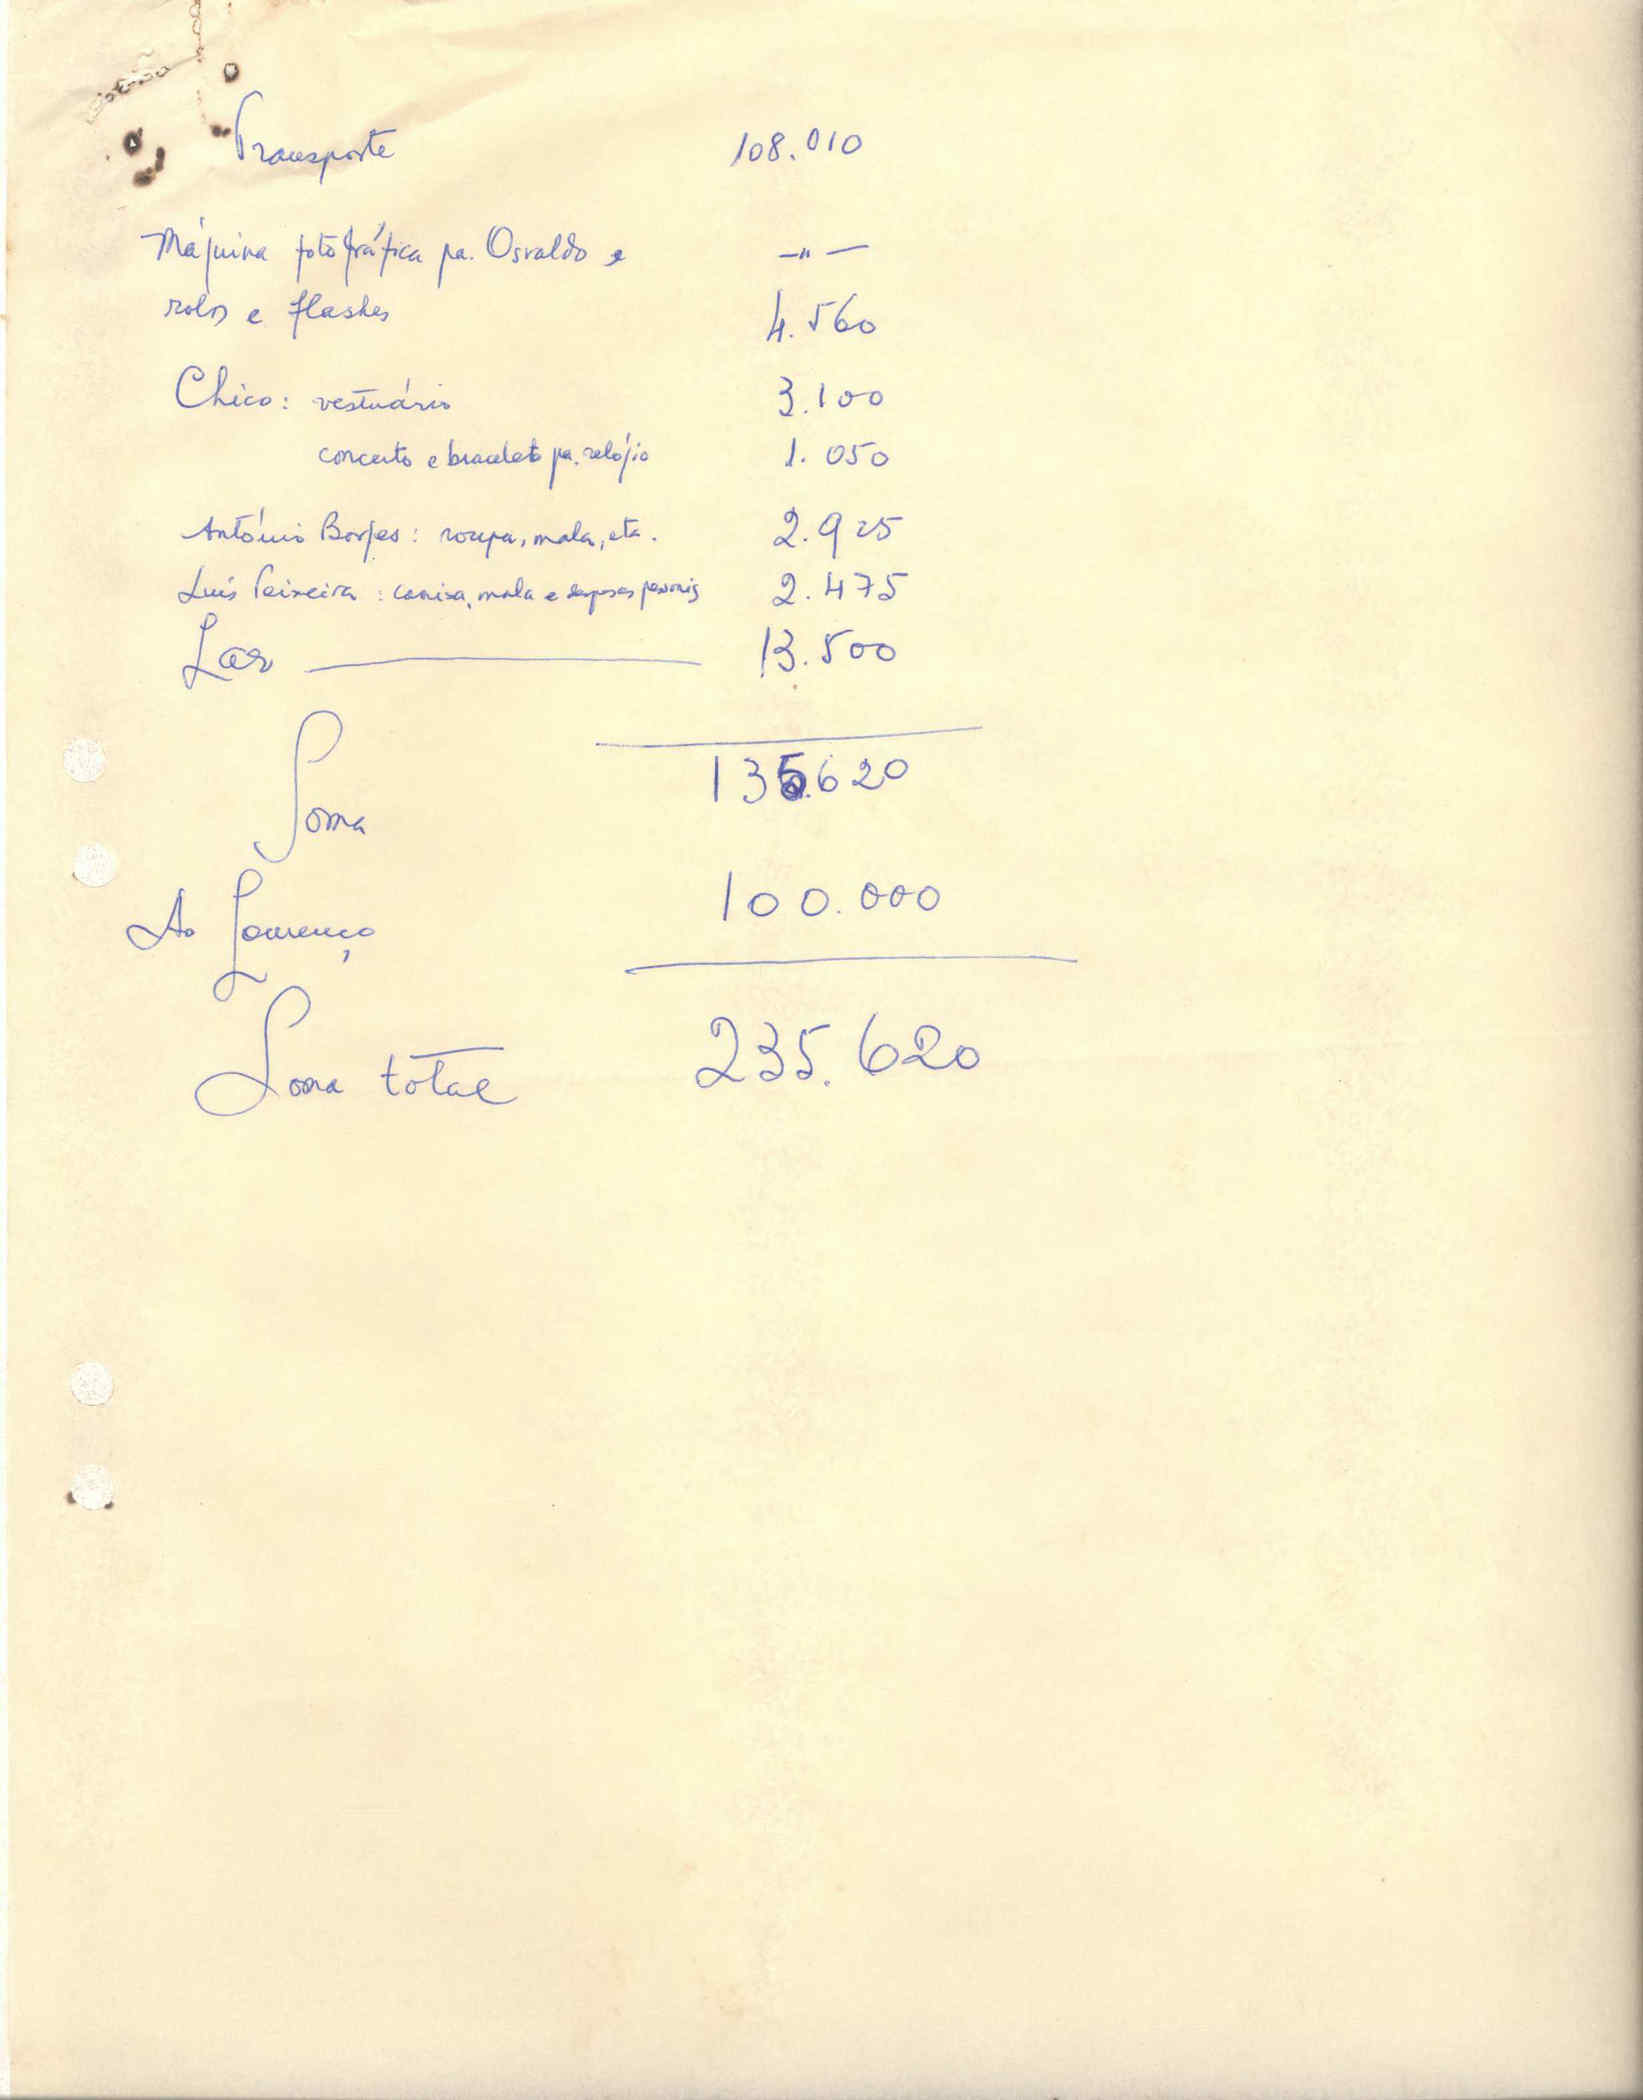 Transporte 108.010
Máquina fotográfica pa. Osvaldo e —"—
rolos e flashes 4.560
Chico: vestuário 3.100
concerto e bracelete pa. relógio 1.050
António Borges: roupa, mala, etc. 2.925
Luís Teixeira: camisa, mala e despesas pessoais 2.475
Lar — 13.500
Soma 135.620
Ao Lourenço 100.000
Soma total 235.620